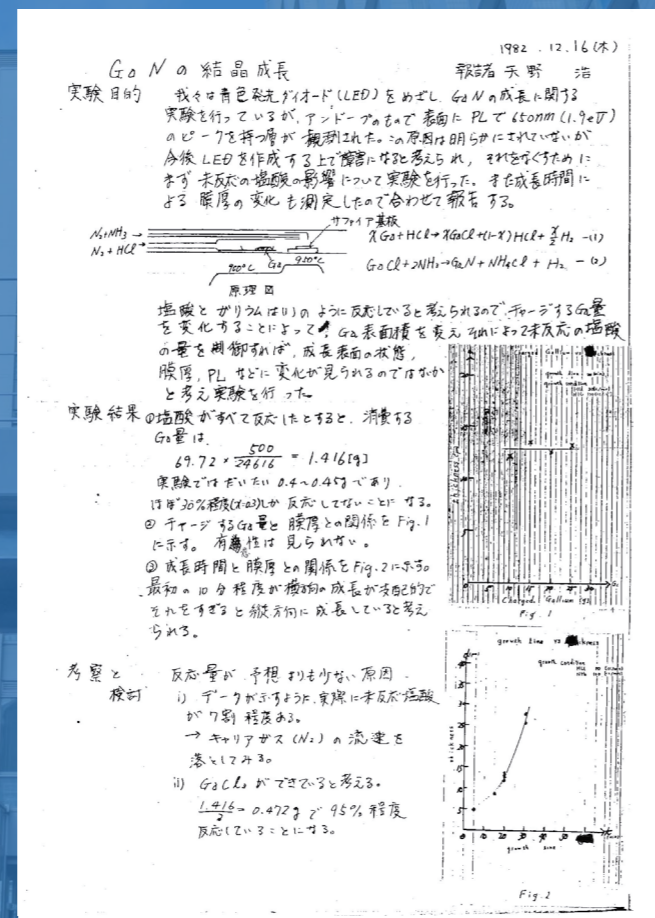 1982.12.16(木)
GaNの結晶成長
報告者 天野 浩
実験目的 我々は青色発光ダイオード(LED)をめざし、GaNの成長に関する
実験を行っているが、アンドープのもので表面にPLで650nm(1.9eV)
のピークを持つ層が観測された。この原因は明らかにされていないが
今後LEDを作成する上で障害になると考えられ、それをなくすために
まず未反応の塩酸の影響について実験を行った。また成長時間に
よる膜厚の変化も測定したので合わせて報告する。
サファイア基板
N2+NH3
N2+HCl
Ga
900°C
950°C
原理図
xGa+HCl→xGaCl+(1-x)HCl+x/2 H2 -(1)
GaCl+2NH3→GaN+NH4Cl+H2 -(2)
塩酸とガリウムは(1)のように反応していると考えられるので、チャージするGa量
を変化することによって、Ga表面積を変え それによって未反応の塩酸
の量を制御すれば、成長表面の状態,
膜厚,PLなどに変化が見られるのではなかと考え実験を行った。
実験結果 ①塩酸がすべて反応したとすると、消費する
Ga量は、
69.72 × 500/24616 = 1.416[g]
実験ではだいたい0.4~0.45gであり、
ほぼ30%程度(x=0.3)しか反応してないことになる。
② チャージするGa量と膜厚との関係をFig.1
に示す。有為性は見られない。
③ 成長時間と膜厚との関係をFig.2に示す。
最初の10分程度が横方向の成長が支配的で
それをすぎると縦方向に成長していると考え
られる。
Charged Gallium
growth condition
thickness
Charged Gallium [g]
Fig.1
考察と検討
反応量が予想よりも少ない原因
i) データが示すように、実際に未反応塩酸
が7割程度ある。
→ キャリアガス(N2)の流速を
落としてみる。
ii) GaCl3ができていると考える。
1.416/3 = 0.472g で 95%程度
反応していることになる。
growth time vs
growth condition
thickness
0 10 20 30 40 50 60
growth time
Fig.2